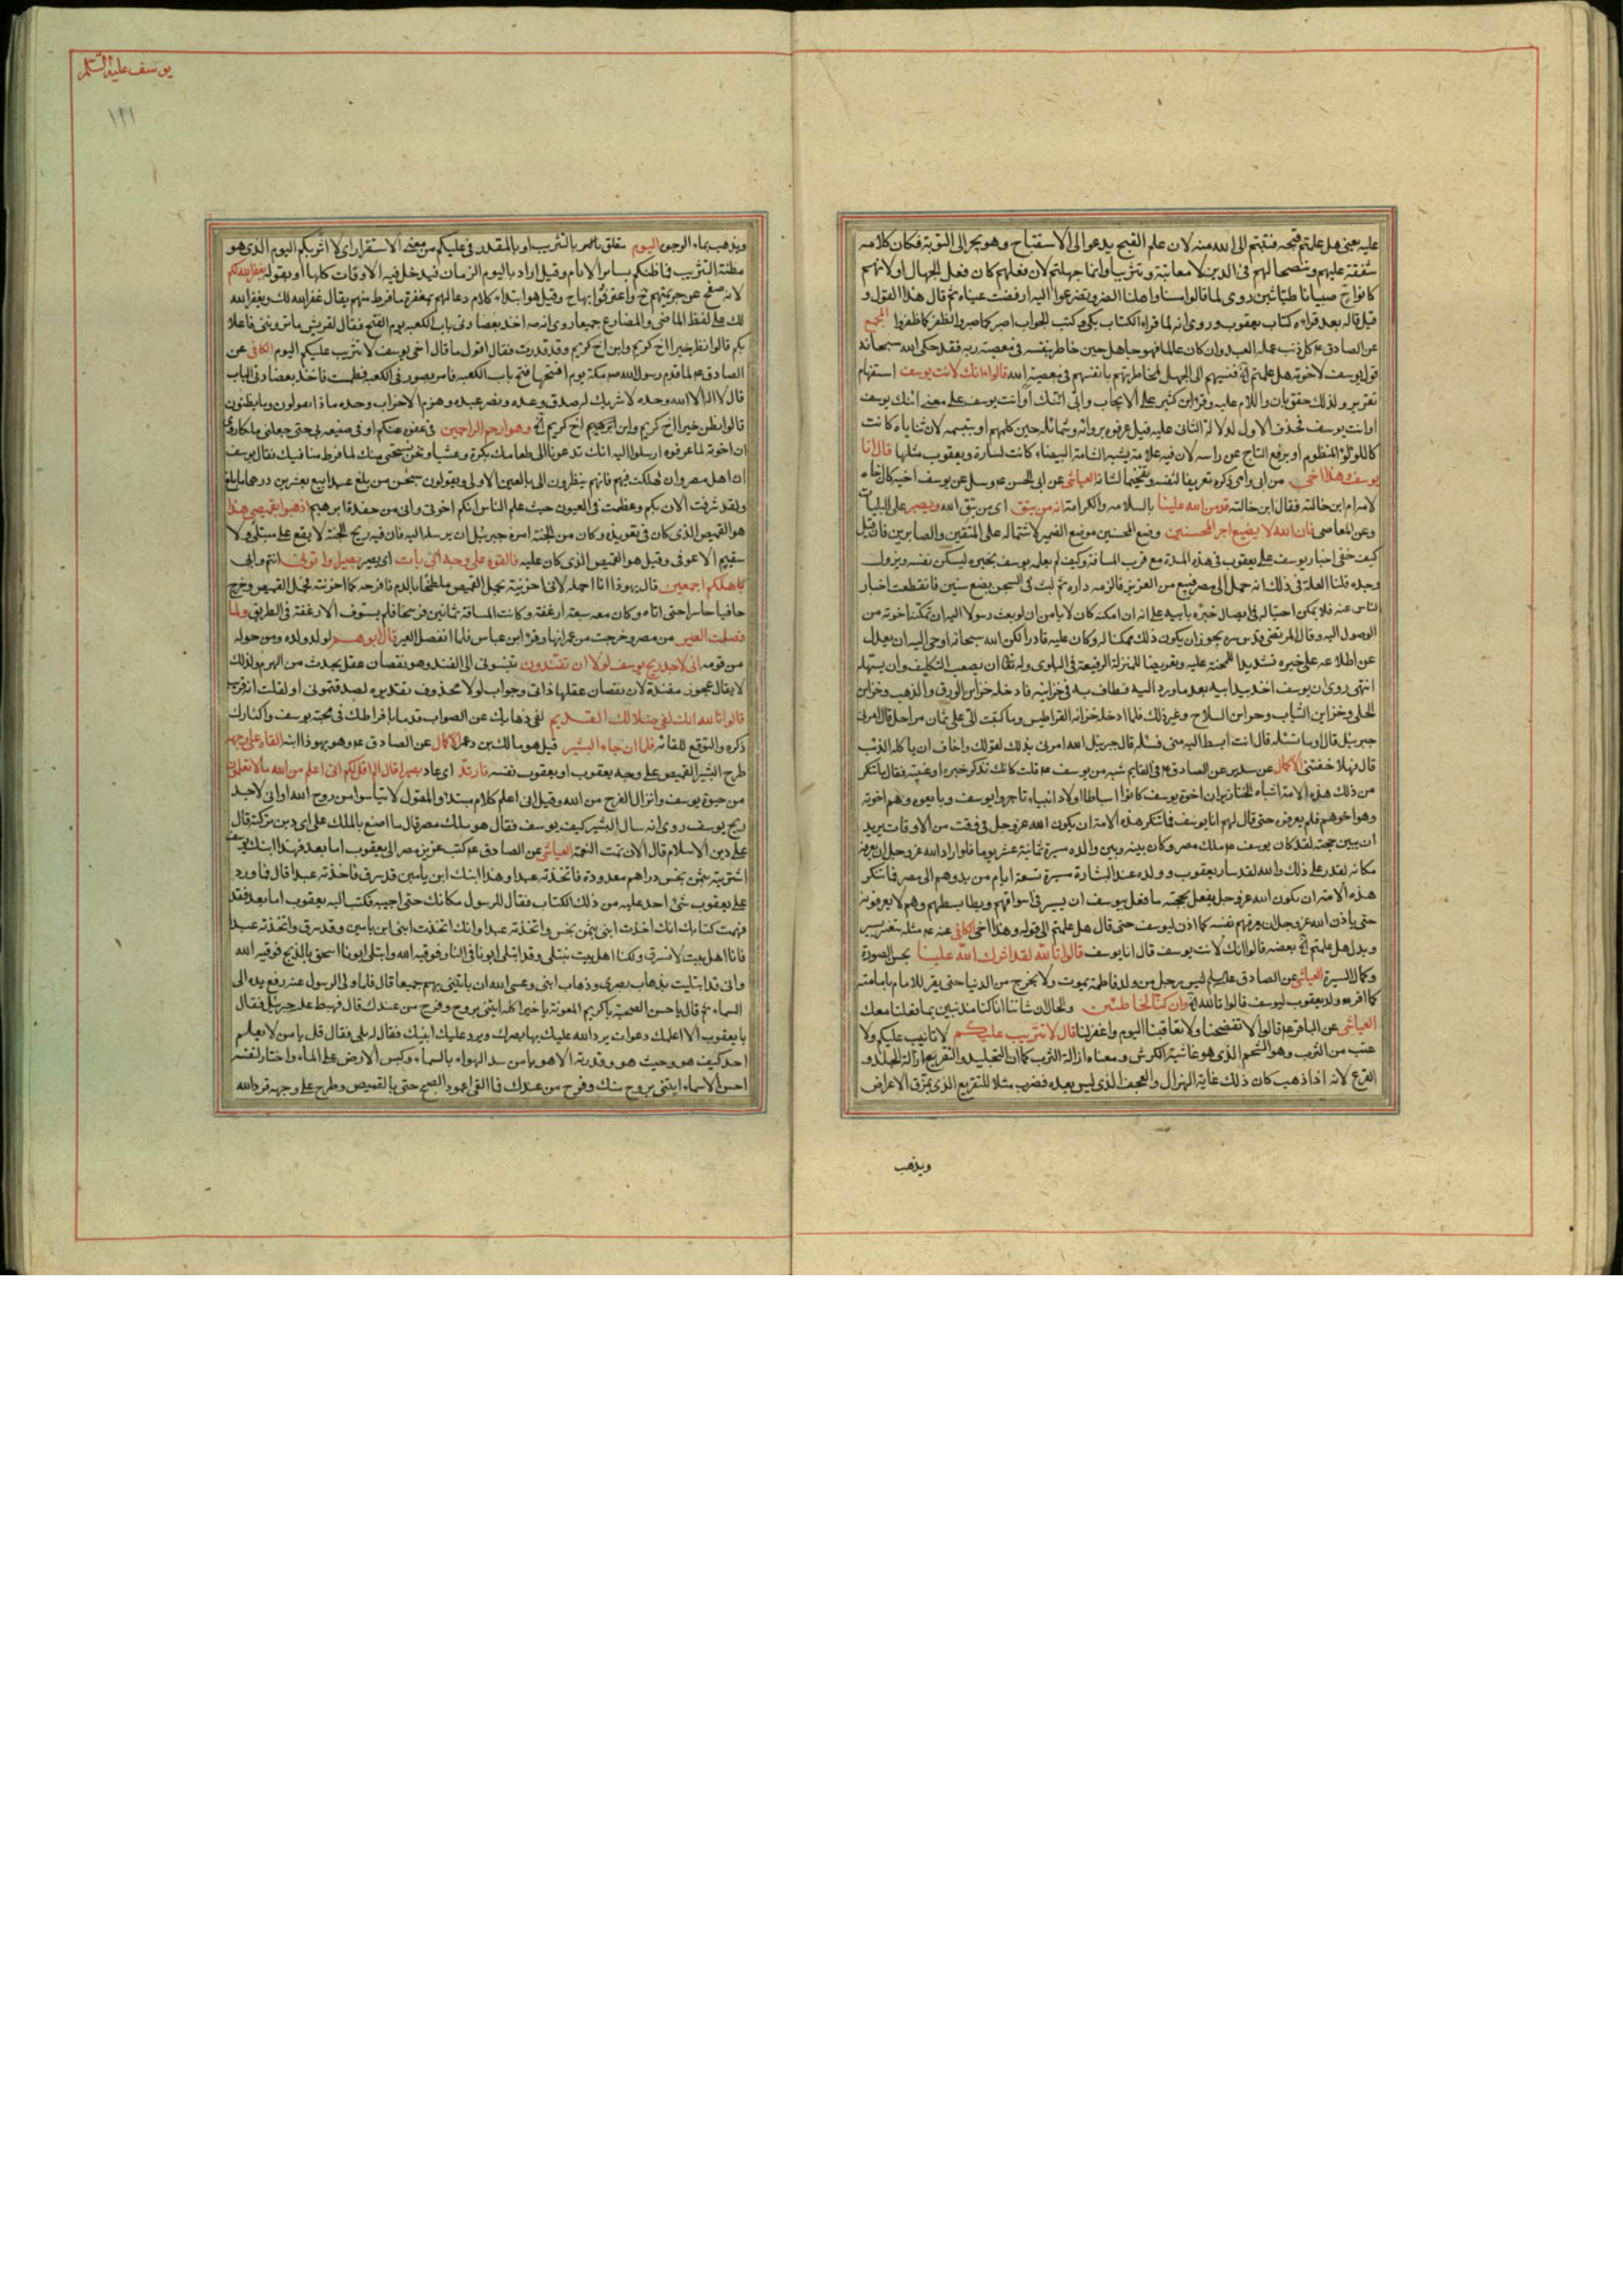 عليه يعني هل علمتم قبحه فتبتم الى الله منه لان علم القبح يدعو الى الاستقباح وهو يجر الى التوبة فكان كلامه
شفقة عليهم وتنصحا لهم في الدين لا معاتبة وتثريبا وانما جهلتم لان فعلهم كان فعل الجهال او لانهم
كانوا ح صبيانا طياشين روى لما قالوا مسنا واهلنا الضر وتضرعوا اليه ارفضت عيناه ثم قال هذا القول و
قيل قاله بعد قراءة كتاب يعقوب وروى انه لما قرأ الكتاب بكى وكتب الجواب اصبر كما صبروا تظفر كما ظفروا المجمع
عن الصادق ع كل ذنب عمله العبد وان كان عالما فهو جاهل حين خاطر بنفسه في معصية ربه فقد حكى الله سبحانه
قول يوسف لاخوته هل علمتم الخ فنسبهم الى الجهل لمخاطرتهم بانفسهم في معصية الله قالوا ءانك لانت يوسف استفهام
تقرير ولذلك حقق بان واللام عليه وقرأ ابن كثير على الايجاب وابي ائنك او انت يوسف على معنى ائنك يوسف
او انت يوسف فحذف الاول لدلالة الثاني عليه قيل عرفوه بروائه وشمائله حين كلمهم او بتبسمه لان ثناياه كانت
كاللؤلؤ المنظوم او برفع التاج عن راسه لان فيه علامة يشبه الشامة البيضاء كانت لسارة ويعقوب مثلها قال انا
يوسف هذا اخي من ابي وامي ذكره تعريفا لنفسه وتفخيما لشانه العياشي عن ابي الحسن ع وسئل عن يوسف اخيه كان اخاه
لامه ام ابن خالته فقال ابن خالته قد من الله علينا بالسلامة والكرامة انه من يتق اي من يتق الله ويصبر على البليات
وعن المعاصي فان الله لا يضيع اجر المحسنين وضع المحسنين موضع الضمير لاشتماله على المتقين والصابرين فان قيل
كيف خفى اخبار يوسف على يعقوب في هذه المدة مع قرب المسافة وكيف لم يعلمه يوسف بخبره ليسكن نفسه ويزول
وجده قلنا العلة في ذلك انه حمل الى مصر فبيع من العزيز فالزمه داره ثم لبث في السجن بضع سنين فانقطعت اخبار
الناس عنه فلما تمكن احتال في ايصال خبره بابيه على انه ان امكنه كان لا يامن ان لو بعث رسولا اليه ان تمكنه اخوته من
الوصول اليه وقال المرتضى قدس سره يجوز ان يكون ذلك ممكنا له وكان عليه قادرا لكن الله سبحانه اوحى اليه ان يعدل
عن اطلاعه على خبره تشديدا للمحنة عليه وتعريضا للمنزلة الرفيعة في البلوى وله تعالى ان يصعب التكليف وان يسهله
انتهى روى ان يوسف اخذ بيد ابيه بعد ما ورد اليه فطاف به في خزاينه فادخله خزاين الورق والذهب وخزاين
الحلى وخزاين الثياب وخزاين السلاح وغير ذلك فلما ادخله خزانة القراطيس وما كتبت الي على ثمان مراحل قال امرني
جبرئيل قال او ما تسئله قال انت ابسط اليه مني فسئله قال جبرئيل الله امرني بذلك لقولك واخاف ان ياكله الذئب
قال فهلا خفتني الاكمال عن سدير عن الصادق ع في القايم شبه من يوسف ع قلت كانك تذكر خبره او غيبته فقال ما تنكر
من ذلك هذه الامة اشباه الخنازير ان اخوة يوسف كانوا اسباطا اولاد انبياء تاجروا يوسف وبايعوه وهم اخوته
وهو اخوهم فلم يعرفوه حتى قال لهم انا يوسف فما تنكر هذه الامة ان يكون الله عز وجل في وقت من الاوقات يريد
ان يبين حجته لقد كان يوسف ع ملك مصر وكان بينه وبين والده مسيرة ثمانية عشر يوما فلو اراد الله عز وجل ان يعرفه
مكانه لقدر على ذلك والله لقد سار يعقوب وولده عند البشارة مسيرة تسعة ايام من بدوهم الى مصر فما تنكر
هذه الامة ان يكون الله عز وجل يفعل بحجته ما فعل بيوسف ان يسير في اسواقهم ويطا بسطهم وهم لا يعرفونه
حتى ياذن الله عز وجل ان يعرفهم نفسه كما اذن ليوسف حتى قال هل علمتم الى قوله وهذا اخي الكافي عنه ع مثله بتغير يسير
وبدل هل علمتم الخ بعضه قالوا انك لانت يوسف قال انا يوسف قالوا تالله لقد اثرك الله علينا بحسن الصورة
وكمال السيرة العياشي عن الصادق عليه السلم ليس رجل من ولد فاطمة يموت ولا يخرج من الدنيا حتى يقر للامام بامامته
كما اقر ولد يعقوب ليوسف قالوا تالله الخ وان كنا لخاطئين والحال ان شاننا انا كنا مذنبين بما فعلنا معك
العياشي عن الباقر ع قالوا لا تفضحنا ولا تعاقبنا اليوم واغفر لنا قال لا تثريب عليكم لا تانيب عليكم ولا
عتب من الثرب وهو الشحم الذي هو غاشية الكرش ومعناه ازالة الثرب كما ان التجليد والتقريع ازالة الجلد و
القرع لانه اذا ذهب كان ذلك غاية الهزال والعجف الذي ليس بعده فضرب مثلا للتقريع الذي يمزق الاعراض
ويذهب
يوسف عليه السلم
١٢١
ويذهب بماء الوجوه اليوم متعلق بالتثريب او بالمقدر في عليكم من معنى الاستقرار اي لا اثربكم اليوم الذي هو
مظنة التثريب فما ظنكم بساير الايام وقيل اراد باليوم الزمان فيدخل فيه الاوقات كلها او بقوله يغفر الله لكم
لانه صفح عن جريمتهم ح واعترفوا بها ح وقيل هو ابتداء كلام دعا لهم بمغفرة ما فرط منهم يقال غفر الله لك ويغفر الله
لك على لفظ الماضي والمضارع جميعا روى انه ص اخذ بعضادتي باب الكعبة يوم الفتح فقال لقريش ما تروني فاعلا
بكم قالوا نظن خيرا اخ كريم وابن اخ كريم وقد قدرت فقال اقول ما قال اخي يوسف لا تثريب عليكم اليوم الكافي عن
الصادق ع لما قدم رسول الله ص مكة يوم افتتحها فتح باب الكعبة فامر بصور في الكعبة فطمست فاخذ بعضادتي الباب
قال لا اله الا الله وحده لا شريك له صدق وعده ونصر عبده وهزم الاحزاب وحده ماذا تقولون وما تظنون
قالوا نظن خيرا اخ كريم وابن اخ كريم الخ وهو ارحم الراحمين في عفوه عنكم او في صنيعه بي حتى جعلني ملكا روى
ان اخوته لما عرفوه ارسلوا اليه انك تدعونا الى طعامك بكرة وعشيا ونحن نستحيي منك لما فرط منا فيك فقال يوسف
ان اهل مصر وان ملكت فيهم فانهم ينظرون الي بالعين الاولى ويقولون سبحان من بلغ عبدا بيع بعشرين درهما ما بلغ
ولقد شرفت الان بكم وعظمت في العيون حيث علم الناس انكم اخوتي واني من حفدة ابرهيم اذهبوا بقميصي هذا
هو القميص الذي كان في تعويذه وكان من الجنة امره جبرئيل ان يرسله اليه فان فيه ريح الجنة لا يقع على مبتلى ولا
سقيم الا عوفي وقيل هو القميص الذي كان عليه فالقوه على وجه ابي يات اي يصير بصيرا واتوني انتم وابي
باهلكم اجمعين قال يهوذا انا احمله لاني احزنته بحمل القميص ملطخا بالدم فافرحه كما احزنته فحمل القميص وخرج
حافيا حاسرا حتى اتاه وكان معه سبعة ارغفة وكانت المسافة ثمانين فرسخا فلم يستوف الارغفة في الطريق ولما
فصلت العير من مصر وخرجت من عمرانها وقرأ ابن عباس فلما انفصل العير قال ابوهم لولد ولده ومن حوله
من قومه اني لاجد ريح يوسف لولا ان تفندون تنسبوني الى الفند وهو نقصان عقل يحدث من الهرم ولذلك
لا يقال عجوز مفندة لان نقصان عقلها ذاتي وجواب لولا محذوف تقديره لصدقتموني او لقلت انه قريب
قالوا تالله انك لفي ضلالك القديم لفي ذهابك عن الصواب قدما بافراطك في محبة يوسف واكثارك
ذكره والتوقع للقائه فلما ان جاء البشير قيل هو مالك بن دعر الاكمال عن الصادق ع وهو يهوذا ابنه القاه على وجهه
طرح البشير القميص على وجه يعقوب او يعقوب نفسه فارتد اي عاد بصيرا قال الم اقل لكم اني اعلم من الله ما لا تعلمون
من حيوة يوسف وانزال الفرج من الله وقيل اني اعلم كلام مبتدأ والمقول لا تياسوا من روح الله او اني لاجد
ريح يوسف روى انه سال البشير كيف يوسف فقال هو ملك مصر قال ما اصنع بالملك على اي دين تركته قال
على دين الاسلام قال الان تمت النعمة العياشي عن الصادق ع كتب عزيز مصر الى يعقوب اما بعد فهذا ابنك يوسف
اشتريته بثمن بخس دراهم معدودة فاتخذته عبدا وهذا ابنك ابن يامين قد سرق فاخذته عبدا قال فما ورد
على يعقوب شئ اشد عليه من ذلك الكتاب فقال للرسول مكانك حتى اجيبه فكتب اليه يعقوب اما بعد فقد
فهمت كتابك انك اخذت ابني بثمن بخس واتخذته عبدا وانك اتخذت ابني ابن يامين وقد سرق واتخذته عبدا
فانا اهل بيت لا نسرق ولكنا اهل بيت نبتلى وقد ابتلى ابونا في النار فوقيه الله وابتلى ابونا اسحق بالذبح فوقيه الله
واني قد ابتليت بذهاب بصري وذهاب ابني وعسى الله ان ياتيني بهم جميعا قال فلما ولى الرسول عنه رفع يده الى
السماء ثم قال يا حسن الصحبة يا كريم المعونة يا خيرا كله ايتني بروح وفرج من عندك قال فهبط عليه جبرئيل فقال
يا يعقوب الا اعلمك دعوات يرد الله عليك بها بصرك ويرد عليك ابنيك فقال له بلى فقال قل يا من لا يعلم
احد كيف هو وحيث هو وقدرته الا هو يا من سد الهواء بالسماء وكبس الارض على الماء واختار لنفسه
احسن الاسماء ايتني بروح منك وفرج من عندك فما انفجر عمود الصبح حتى اتي بالقميص وطرح على وجهه فرد الله